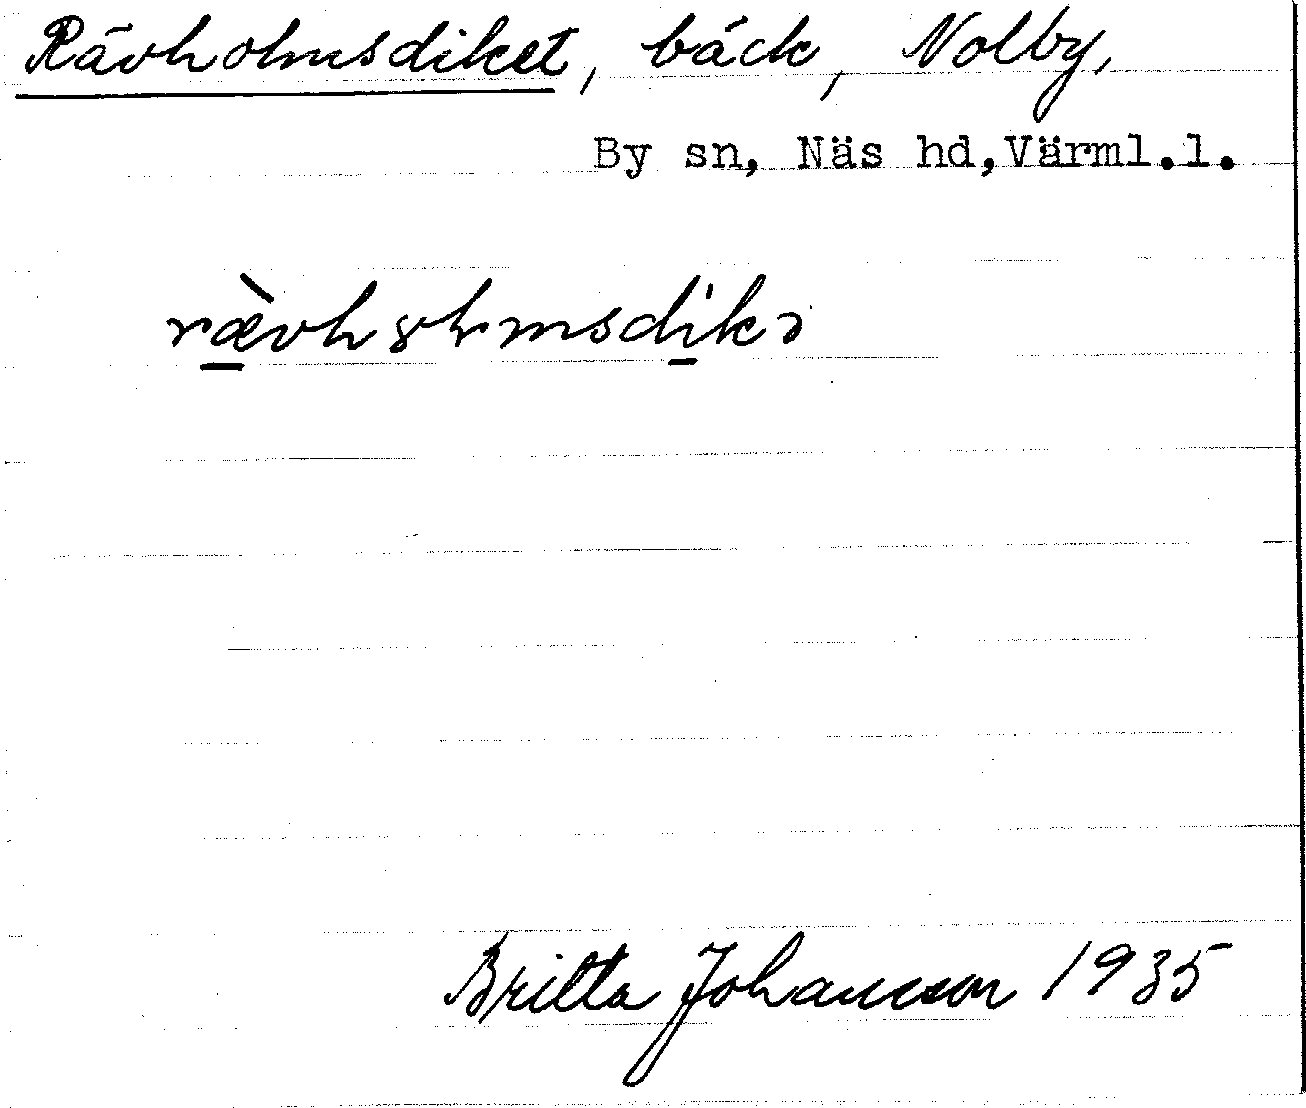 Rävholmsdiket, bäck, Nolby,
By sn, Näs hd, Värml.l.
Britta Johansson 1935